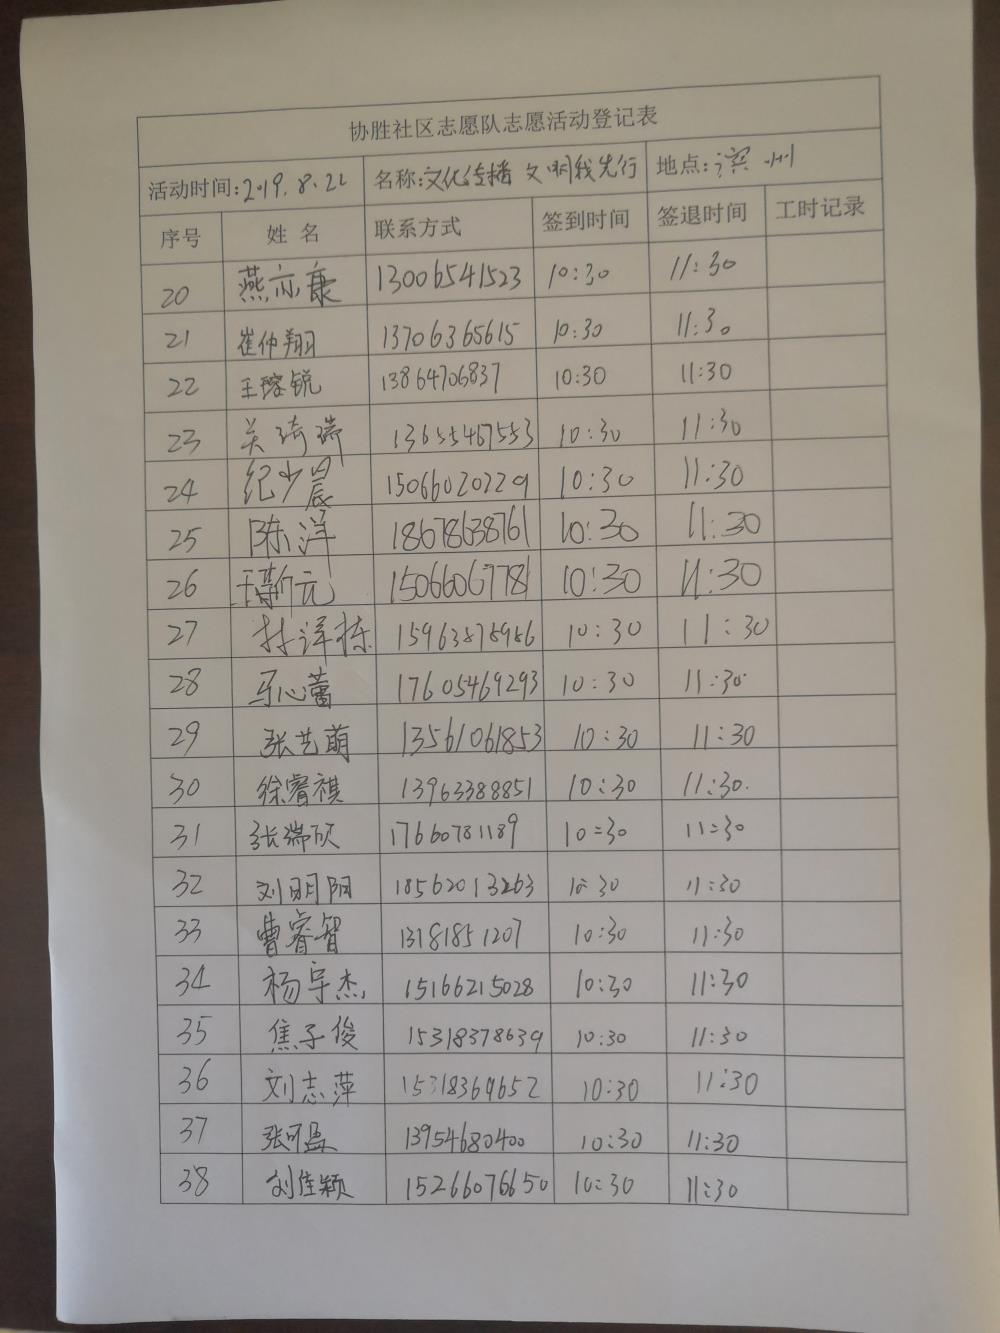 协胜社区志愿队志愿活动登记表
活动时间:2019.8.22 名称:文化传播 文明我先行 地点:滨州
序号 姓名 联系方式 签到时间 签退时间 工时记录
20 燕亦康 13006541523 10:30 11:30
21 崔仲翔 13706365615 10:30 11:30
22 王瑢锐 13864706837 10:30 11:30
23 关琦瑞 13655467553 10:30 11:30
24 纪少晨 15066020229 10:30 11:30
25 陈洋 18678638761 10:30 11:30
26 15066067781 10:30 11:30
27 林洋栋 15963878986 10:30 11:30
28 马心蕾 17605469293 10:30 11:30
29 张艺萌 13561061853 10:30 11:30
30 徐睿祺 13963388851 10:30 11:30.
31 张瑞欣 17660781189 10:30 11:30
32 刘明阳 18562013263 10:30 11:30
33 曹睿智 13181851207 10:30 11:30
34 杨宇杰 15166215028 10:30 11:30
35 焦子俊 15318378639 10:30 11:30
36 刘志萍 15318369652 10:30 11:30
37 张可盈 13954680400 10:30 11:30
38 刘佳颖 15266076650 10:30 11:30